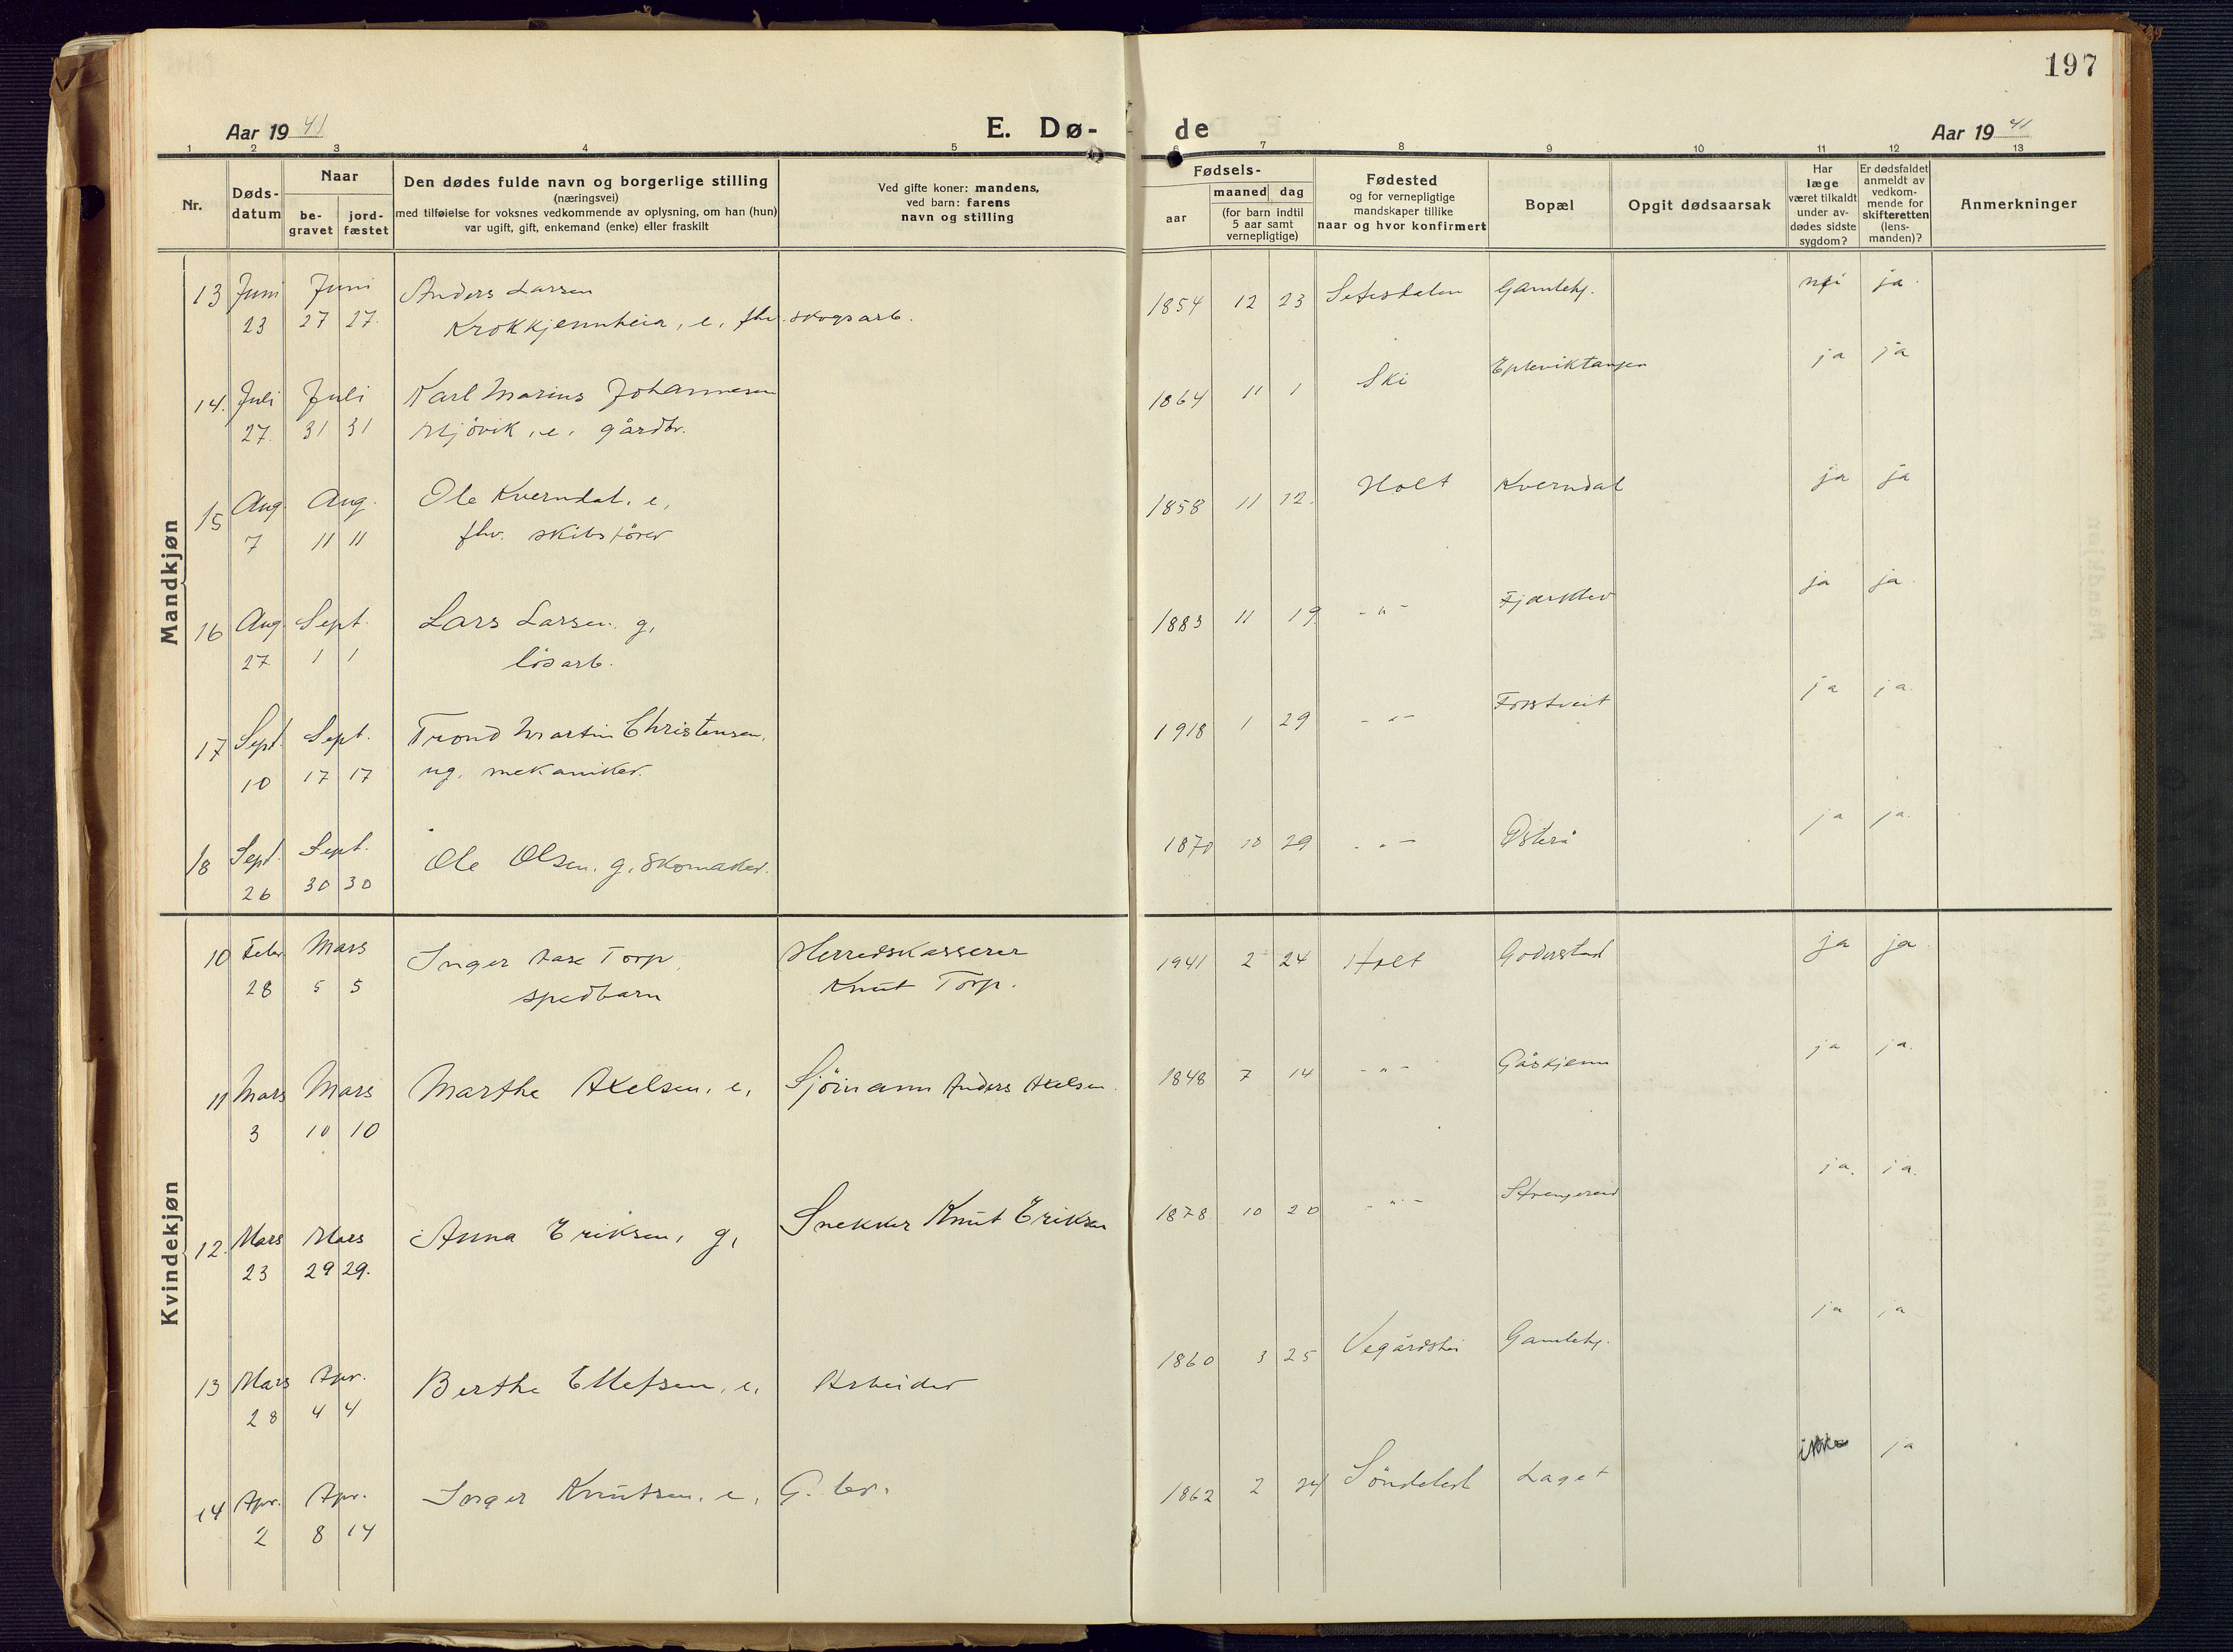 197
Aar 19 41
E. Dø-
de
Aar 19 41
1 2 3 4 5 6 7 8 9 10 11 12 13
Nr.
Døds-
datum
Naar
be-
gravet
jord-
fæstet
Den dødes fulde navn og borgerlige stilling
(næringsvei)
med tilføielse for voksnes vedkommende av oplysning, om han (hun)
var ugift, gift, enkemand (enke) eller fraskilt
Ved gifte koner: mandens,
ved barn: farens
navn og stilling
Fødsels-
aar
maaned dag
(for barn indtil
5 aar samt
vernepligtige)
Fødested
og for vernepligtige
mandskaper tillike
naar og hvor konfirmert
Bopæl
Opgit dødsaarsak
Har
læge
været tilkaldt
under av-
dødes sidste
sygdom?
Er dødsfaldet
anmeldt av
vedkom-
mende for
skifteretten
(lens-
manden)?
Anmerkninger
Mandkjøn
13 Juni Juni Anders Larsen 1854 12 23 Setesdalen Gamlehj. nei ja.
23 27 27. Krokkjennheia, e. fhv. skogsarb.
14. Juli Juli Karl Marius Johannesen 1864 11 1 Ski Epleviktangen ja ja
27. 31 31 e. gårdbr.
15 Aug. Aug. Ole Kverndal, e. 1858 11 12. Holt Kverndal ja ja
7 11 11 fhv. skibsfører
16 Aug. Sept. Lars Larsen g. 1883 11 19 -"- Fjærkleiv ja ja.
27. 1 1 løsarb.
17 Sept. Sept. Trond Martin Christensen, 1918 1 29 -"- Fosstveit ja ja.
10 17 17 ug. mekaniker.
18 Sept. Sept. Ole Olsen. g. skomaker. 1870 10 29 -"- Østerå ja ja.
26 30 30
Kvindekjøn
10 Febr. Mars Inger Aase Torp, Herredskasserer 1941 2 24 Holt Goderstad ja ja
28 5 5 spedbarn Knut Torp.
11 Mars Mars Marthe Axelsen, e, Sjömann Anders Axelsen. 1848 7 14 -"- Gåskjenn ja ja.
3 10 10
12. Mars Mars Anna Eriksen, g, Snekker Knut Eriksen 1878 10 20 -"- Strengereid ja. ja.
23 29 29.
13 Mars Apr. Berthe Ellefsen, e, Arbeider 1860 3 25 Vegårdshei Gamlehj. ja ja
28 4 4
14 Apr. Apr. Inger Knutsen. e, G. br. 1862 2 24 Söndeled Laget ikke ja
2 8 14